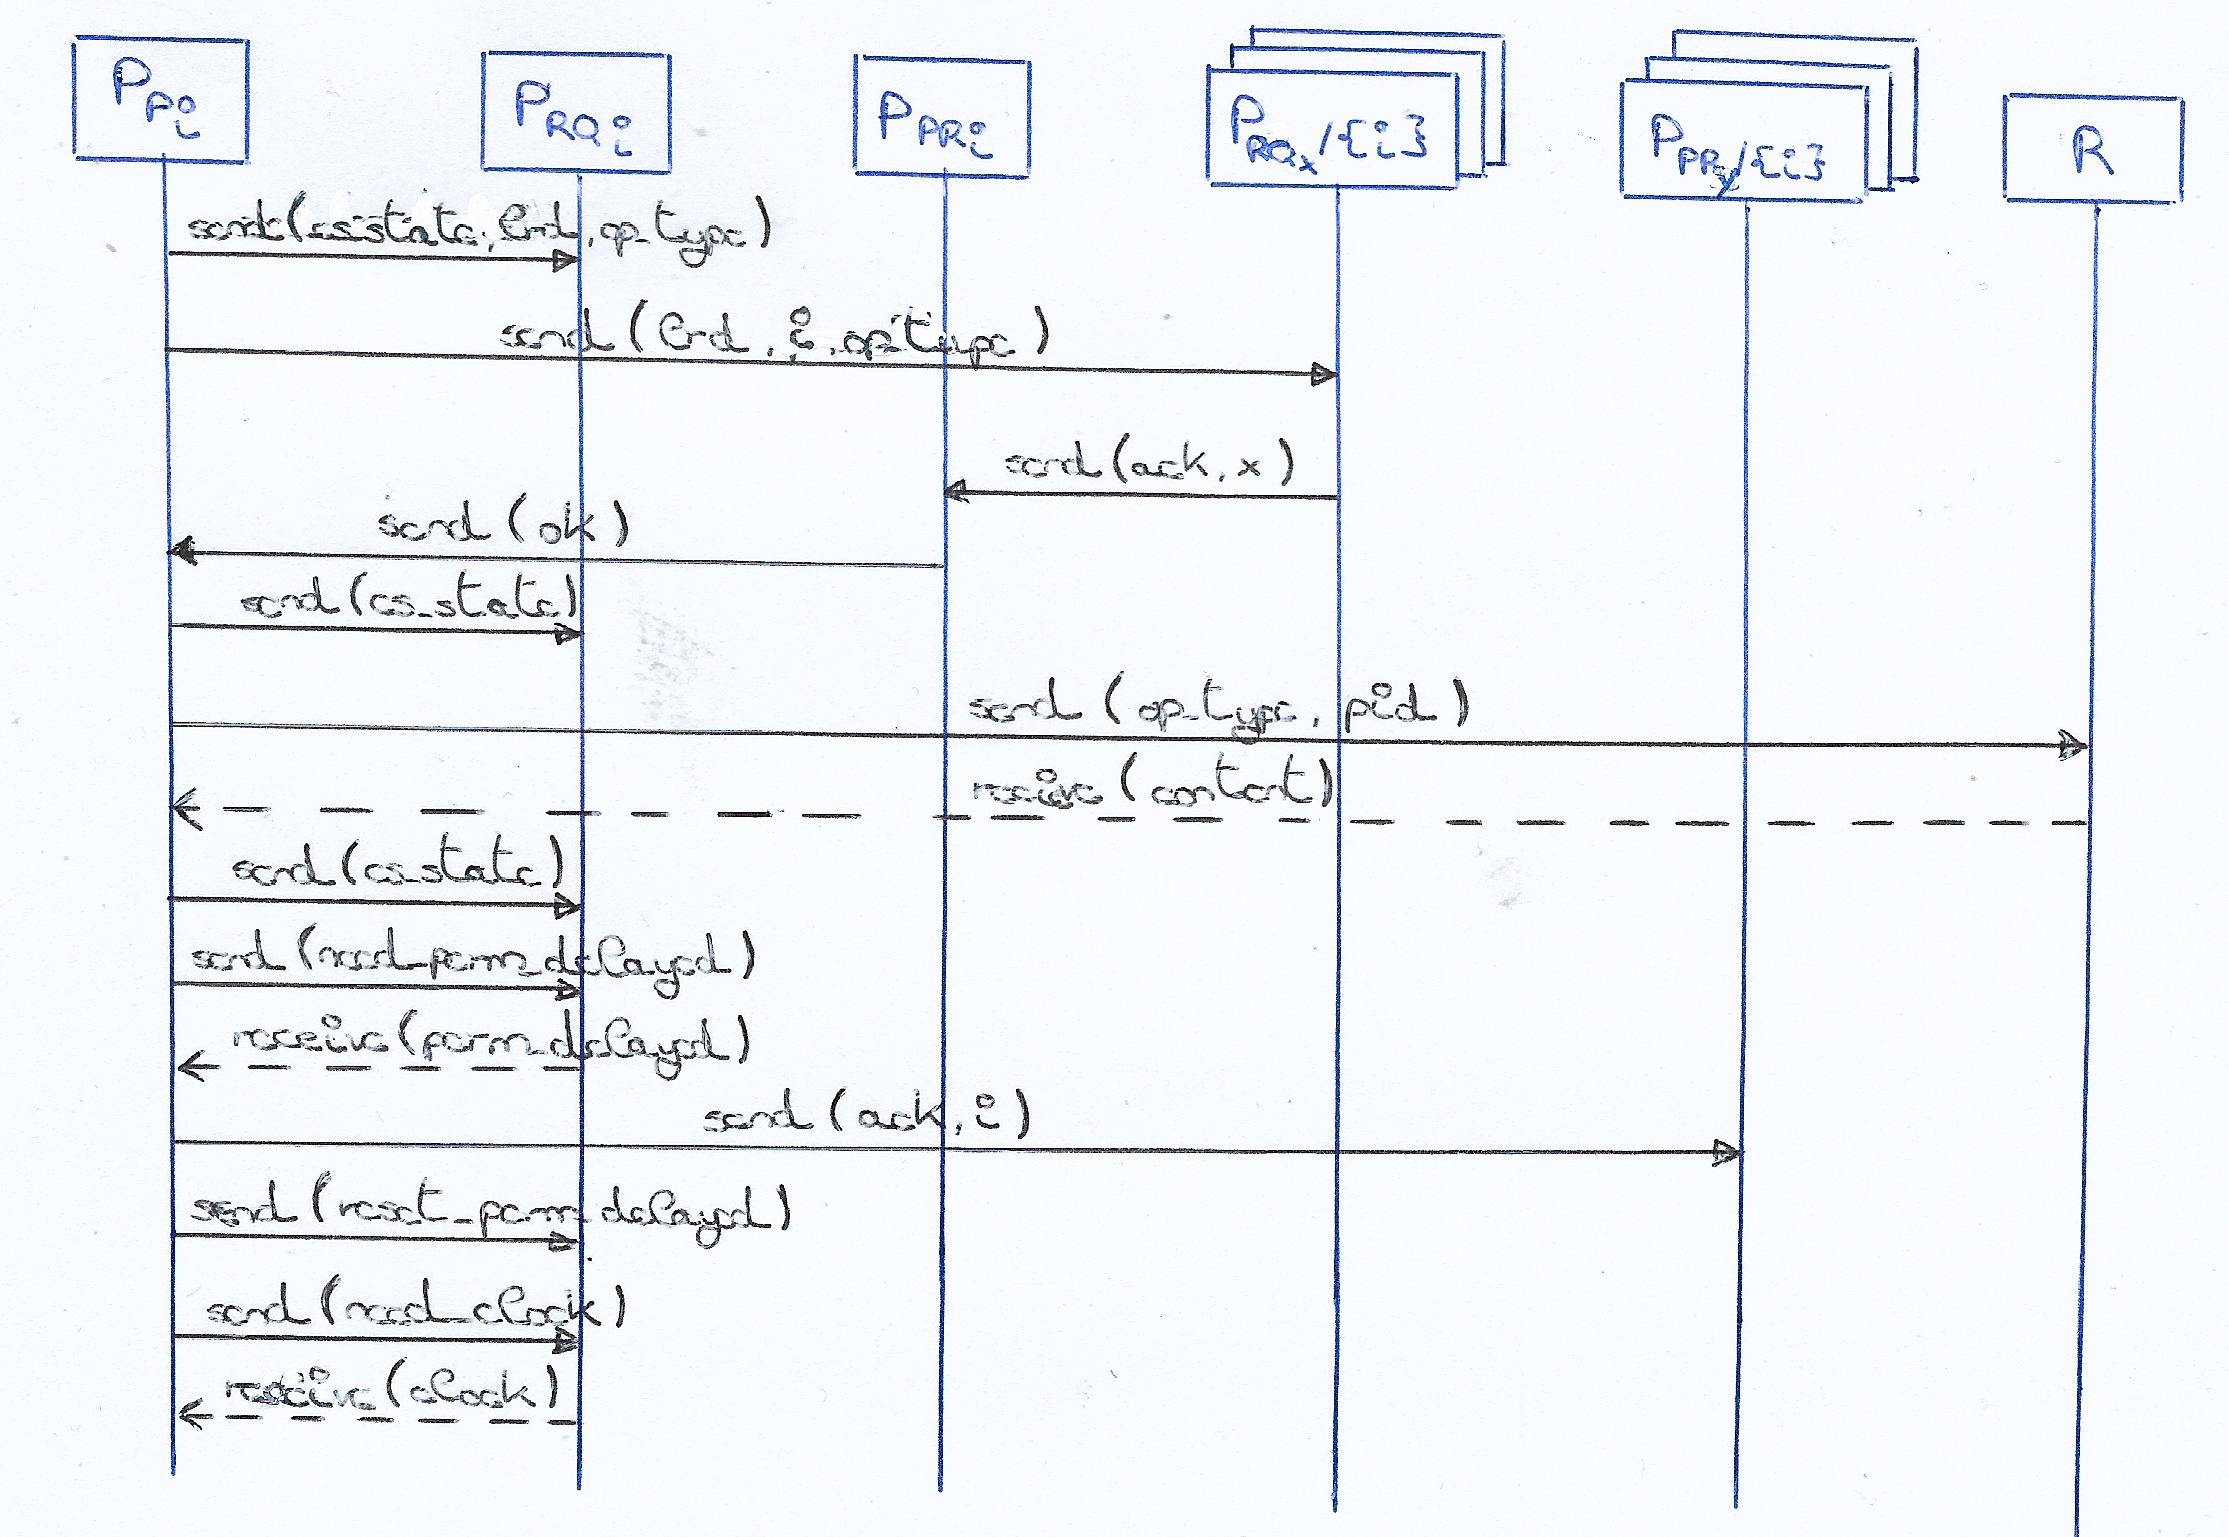 P_Pi
P_RQi
P_PRi
P_RQx/{i}
P_PRy/{i}
R
send(cs_state, lrd, op_type)
send(lrd, i, op_type)
send(ack, x)
send(ok)
send(cs_state)
send(op_type, pid)
receive(content)
send(cs_state)
send(read_perm_delayed)
receive(perm_delayed)
send(ack, i)
send(reset_perm_delayed)
send(read_clock)
receive(clock)